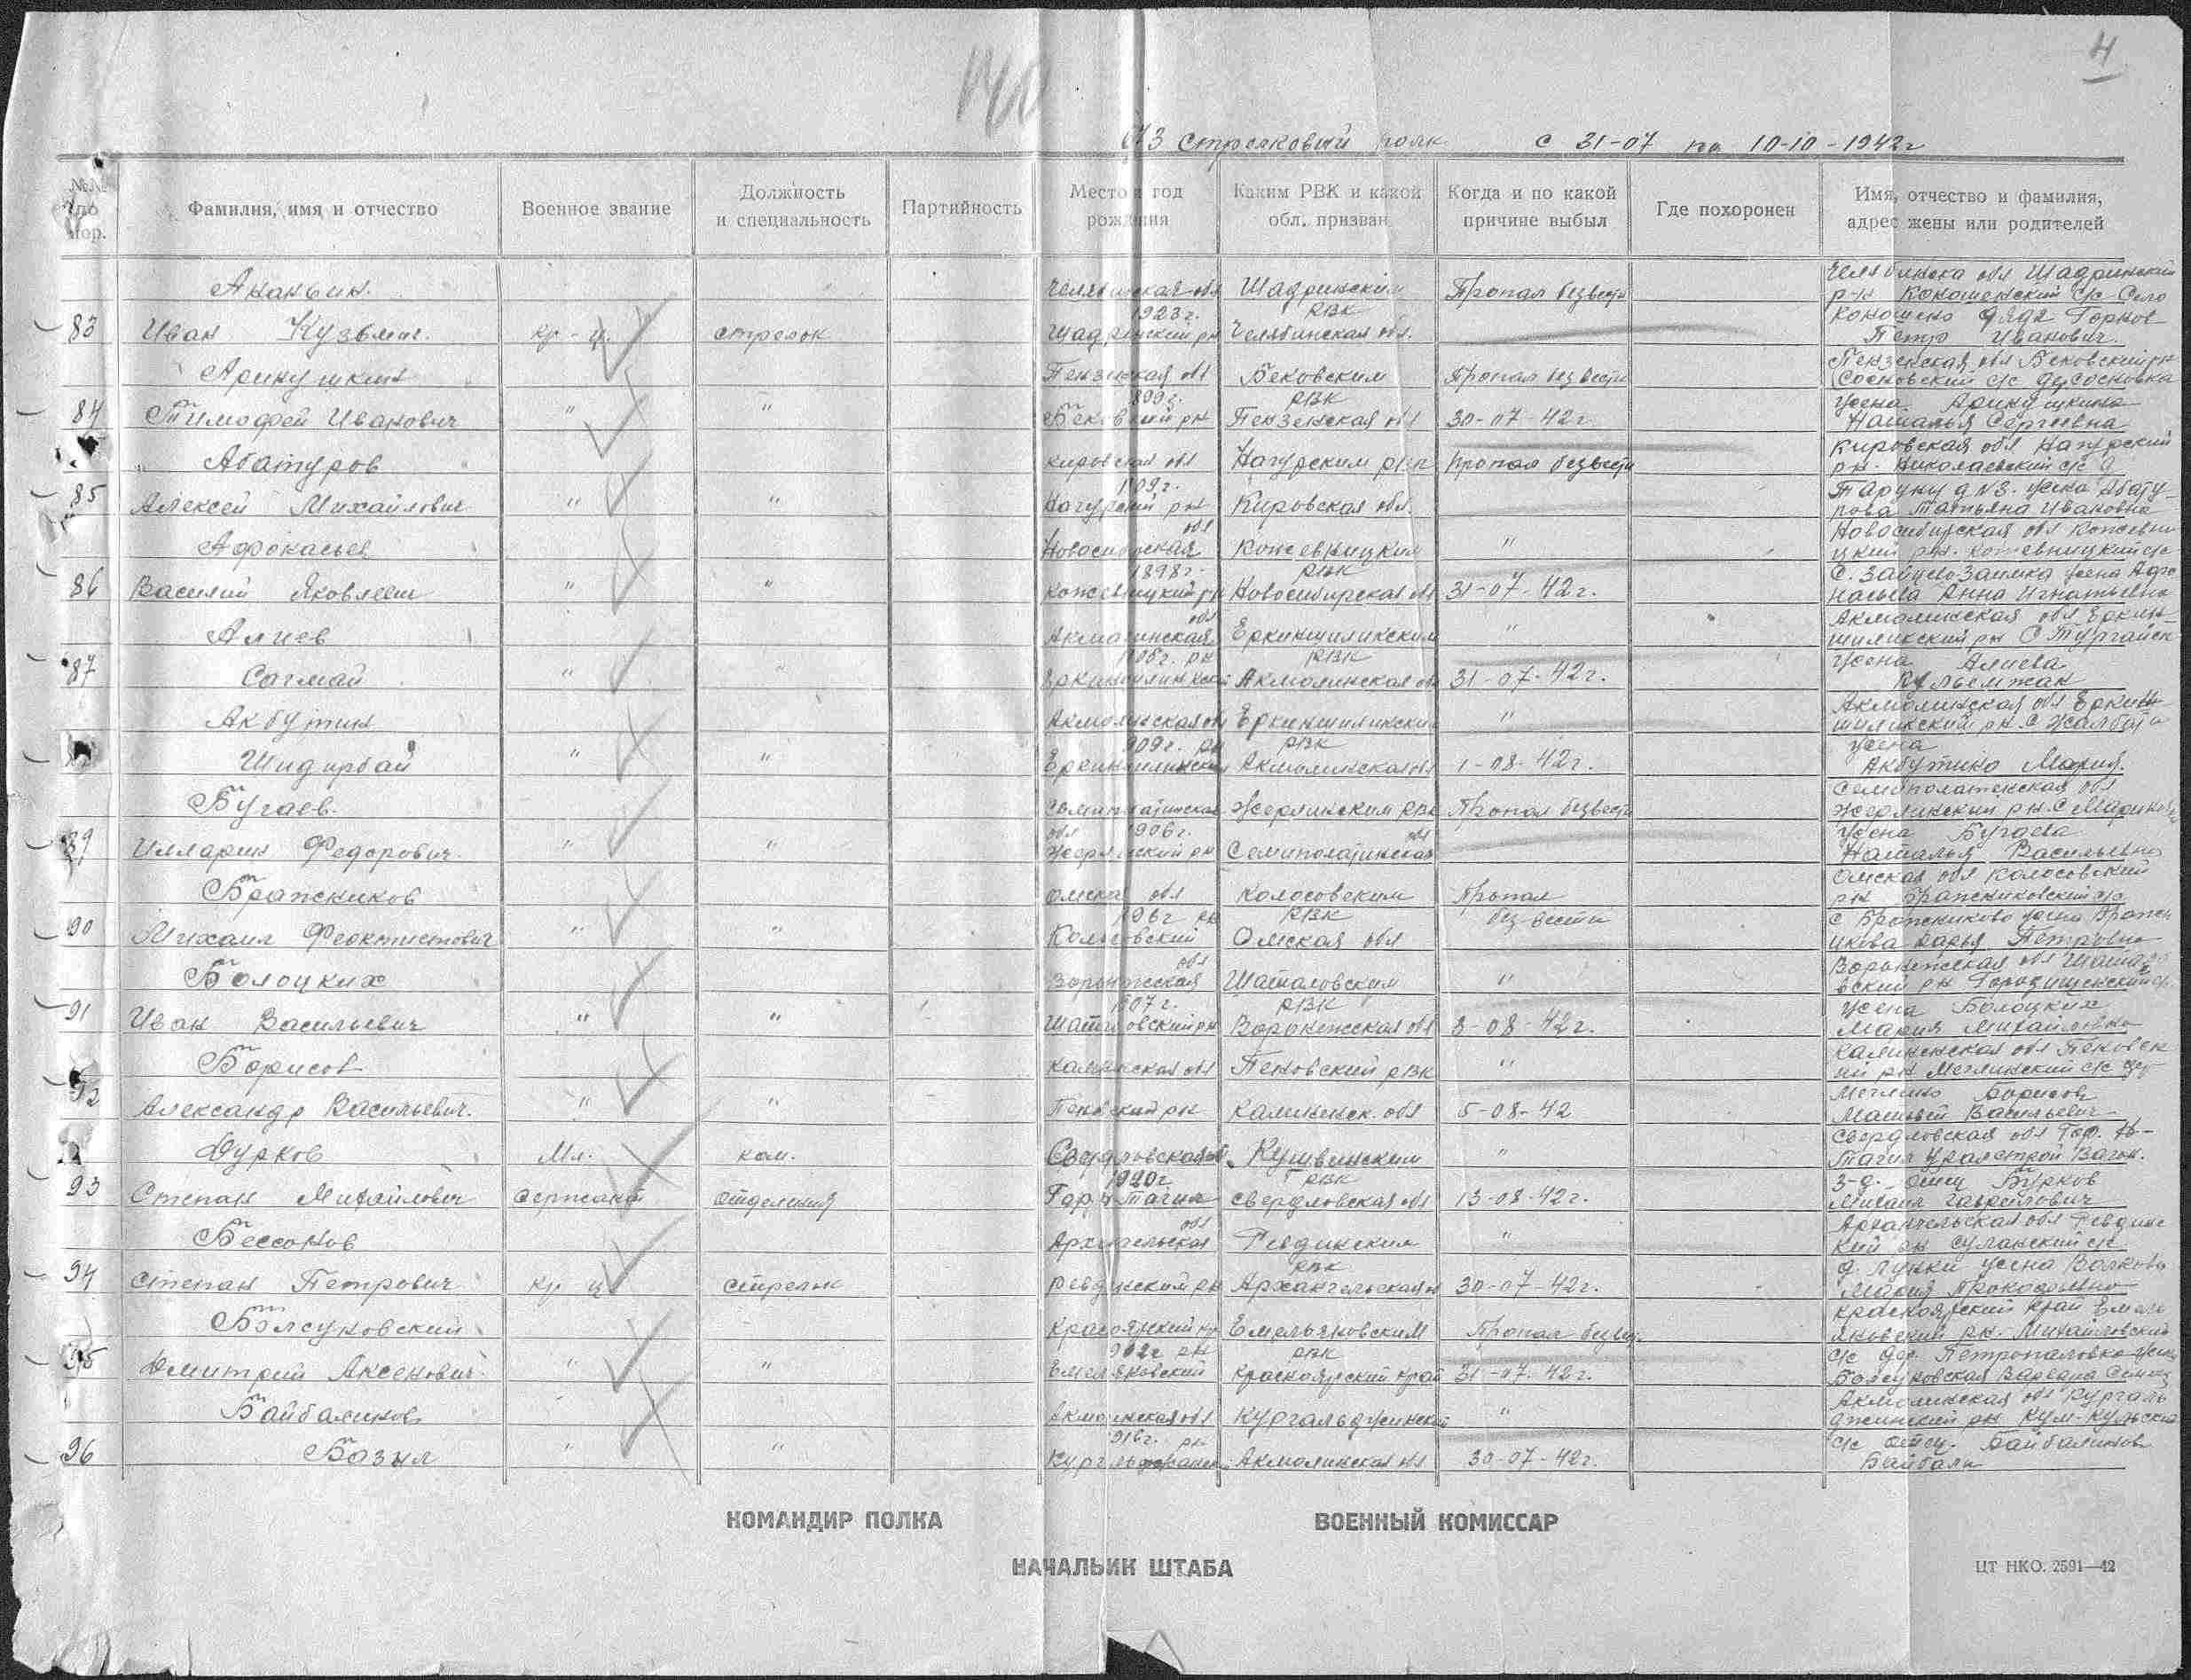 4
673 стрелковый полк с 31-07 по 10-10-1942г
№№ по пор. Фамилия, имя и отчество Военное звание Должность и специальность Партийность Место и год рождения Каким РВК и какой обл. призван Когда и по какой причине выбыл Где похоронен Имя, отчество и фамилия, адрес жены или родителей
Ананьин. Челябинская обл Шадринским Пропал безвести Челябинска обл Шадринский
1923г. РВК р-н Коношенский с/с Село
83 Иван Кузьмич. кр-ц. стрелок Шадринский рн Челябинская обл. Коношено дядя Горнов
Петр Иванович.
Аринушкин Пензенская обл Бековским Пропал без вести Пензенская обл Бековский рн
РВК Сосновский с/с дер Сосновка
84 Тимофей Иванович " " Бековский рн Пензенская обл 30-07-42г. жена Аринушкина
Наталья Сергеевна
Абатуров Кировская обл Нагурским рвк Пропал безвести Кировская обл Нагурский
1909г. рн. Николаевский с/с д
85 Алексей Михайлович " " Нагурский рн Кировская обл. Таруну д N3. жена Абату-
рова Татьяна Ивановна
Афонасьев Новосибирская обл Кожевницким " Новосибирская обл Кожевни
1898г. РВК цкий рн. Кожевницкий с/с
86 Василий Яковлевич " " Кожевницкий рн Новосибирская обл 31-07-42г. с. Зайцево Заимка жена Афо
насьева Анна Игнатьевна
Алиев Акмолинская обл Еркиншиликским " Акмолинская обл Еркин-
рн РВК шиликский рн С Тургайск
87 Сагмай " " Еркиншиликский Акмолинская обл 31-07-42г. жена Алиева
Кульемжан
Акбутин Акмолинская обл Еркиншиликским " Акмолинская обл Еркин
909г. рн РВК шиликский рн. С Жалбай
Шидирбай " " Еркиншиликский Акмолинская обл 1-08-42г. жена
Акбутина Мария.
Бугаев. Семиполатинская Жерминским РВК Пропал безвести Семиполатинская обл
обл 1906г. обл Жерминский рн. С Маринов
89 Илларин Федорович. " " Жерминский рн Семиполатинская жена Бугаева
Наталья Васильевна
Бражников Омская обл Колосовским Пропал Омская обл Колосовский
1906г рн РВК без вести рн Бражниковский с/с
90 Михаил Феоктистович " " Колосовский Омская обл с Бражниково жена Бражн
икова Дарья Петровна
Болоцких Воронежская обл Шаталовским " Воронежская обл Шатало
1907г. РВК вский рн Городищенский с/с
91 Иван Васильевич " " Шаталовский рн Воронежская обл 3-08-42г. жена Болоцких
Мария Михайловна
Борисов Калининская обл Пеновский РВК " Калининская обл Пеновск
ий рн Меглинский с/с дер
92 Александр Васильевич. " " Пеновский рн Калининск. обл 5-08-42 Меглино Борисов
Матвей Васильевич
Бурков Мл. ком. Свердловская об. Кушвинским " Свердловская обл Гор. Н-
1920г РВК Тагил Уралстрой Вагон.
93 Степан Михайлович сержант отделения Гор Н-Тагил Свердловская обл 13-08-42г. з-д. отец Бурков
Михаил Гаврилович
Бессонов Архангельская обл Ревдинским " Архангельская обл Ревдинс
РВК кий рн Суланский с/с
94 Степан Петрович кр-ц стрелок Ревдинском рн Архангельская об 30-07-42г. д. Лунки жена Волкова
Мария Прокофьевна
Болсуновский Красноярский кр Емельяновским Пропал безвес. Красноярский край Емель
902г рн РВК яновский рн. Михайловский
95 Дмитрий Аксенович. " " Емельяновский Красноярский край 31-07-42г. с/с дер. Петропаловка жена
Болсуновская Варвара Семен
Байбалинов Акмолинская обл Кургальджинский " Акмолинская обл Кургаль
916г. рн джинский рн Кум-Кульский
96 Базыл " " Акмолинская обл 30-07-42г. с/с отец. Байбалинов
Байбали
КОМАНДИР ПОЛКА ВОЕННЫЙ КОМИССАР
НАЧАЛЬНИК ШТАБА
ЦТ НКО. 2591—42